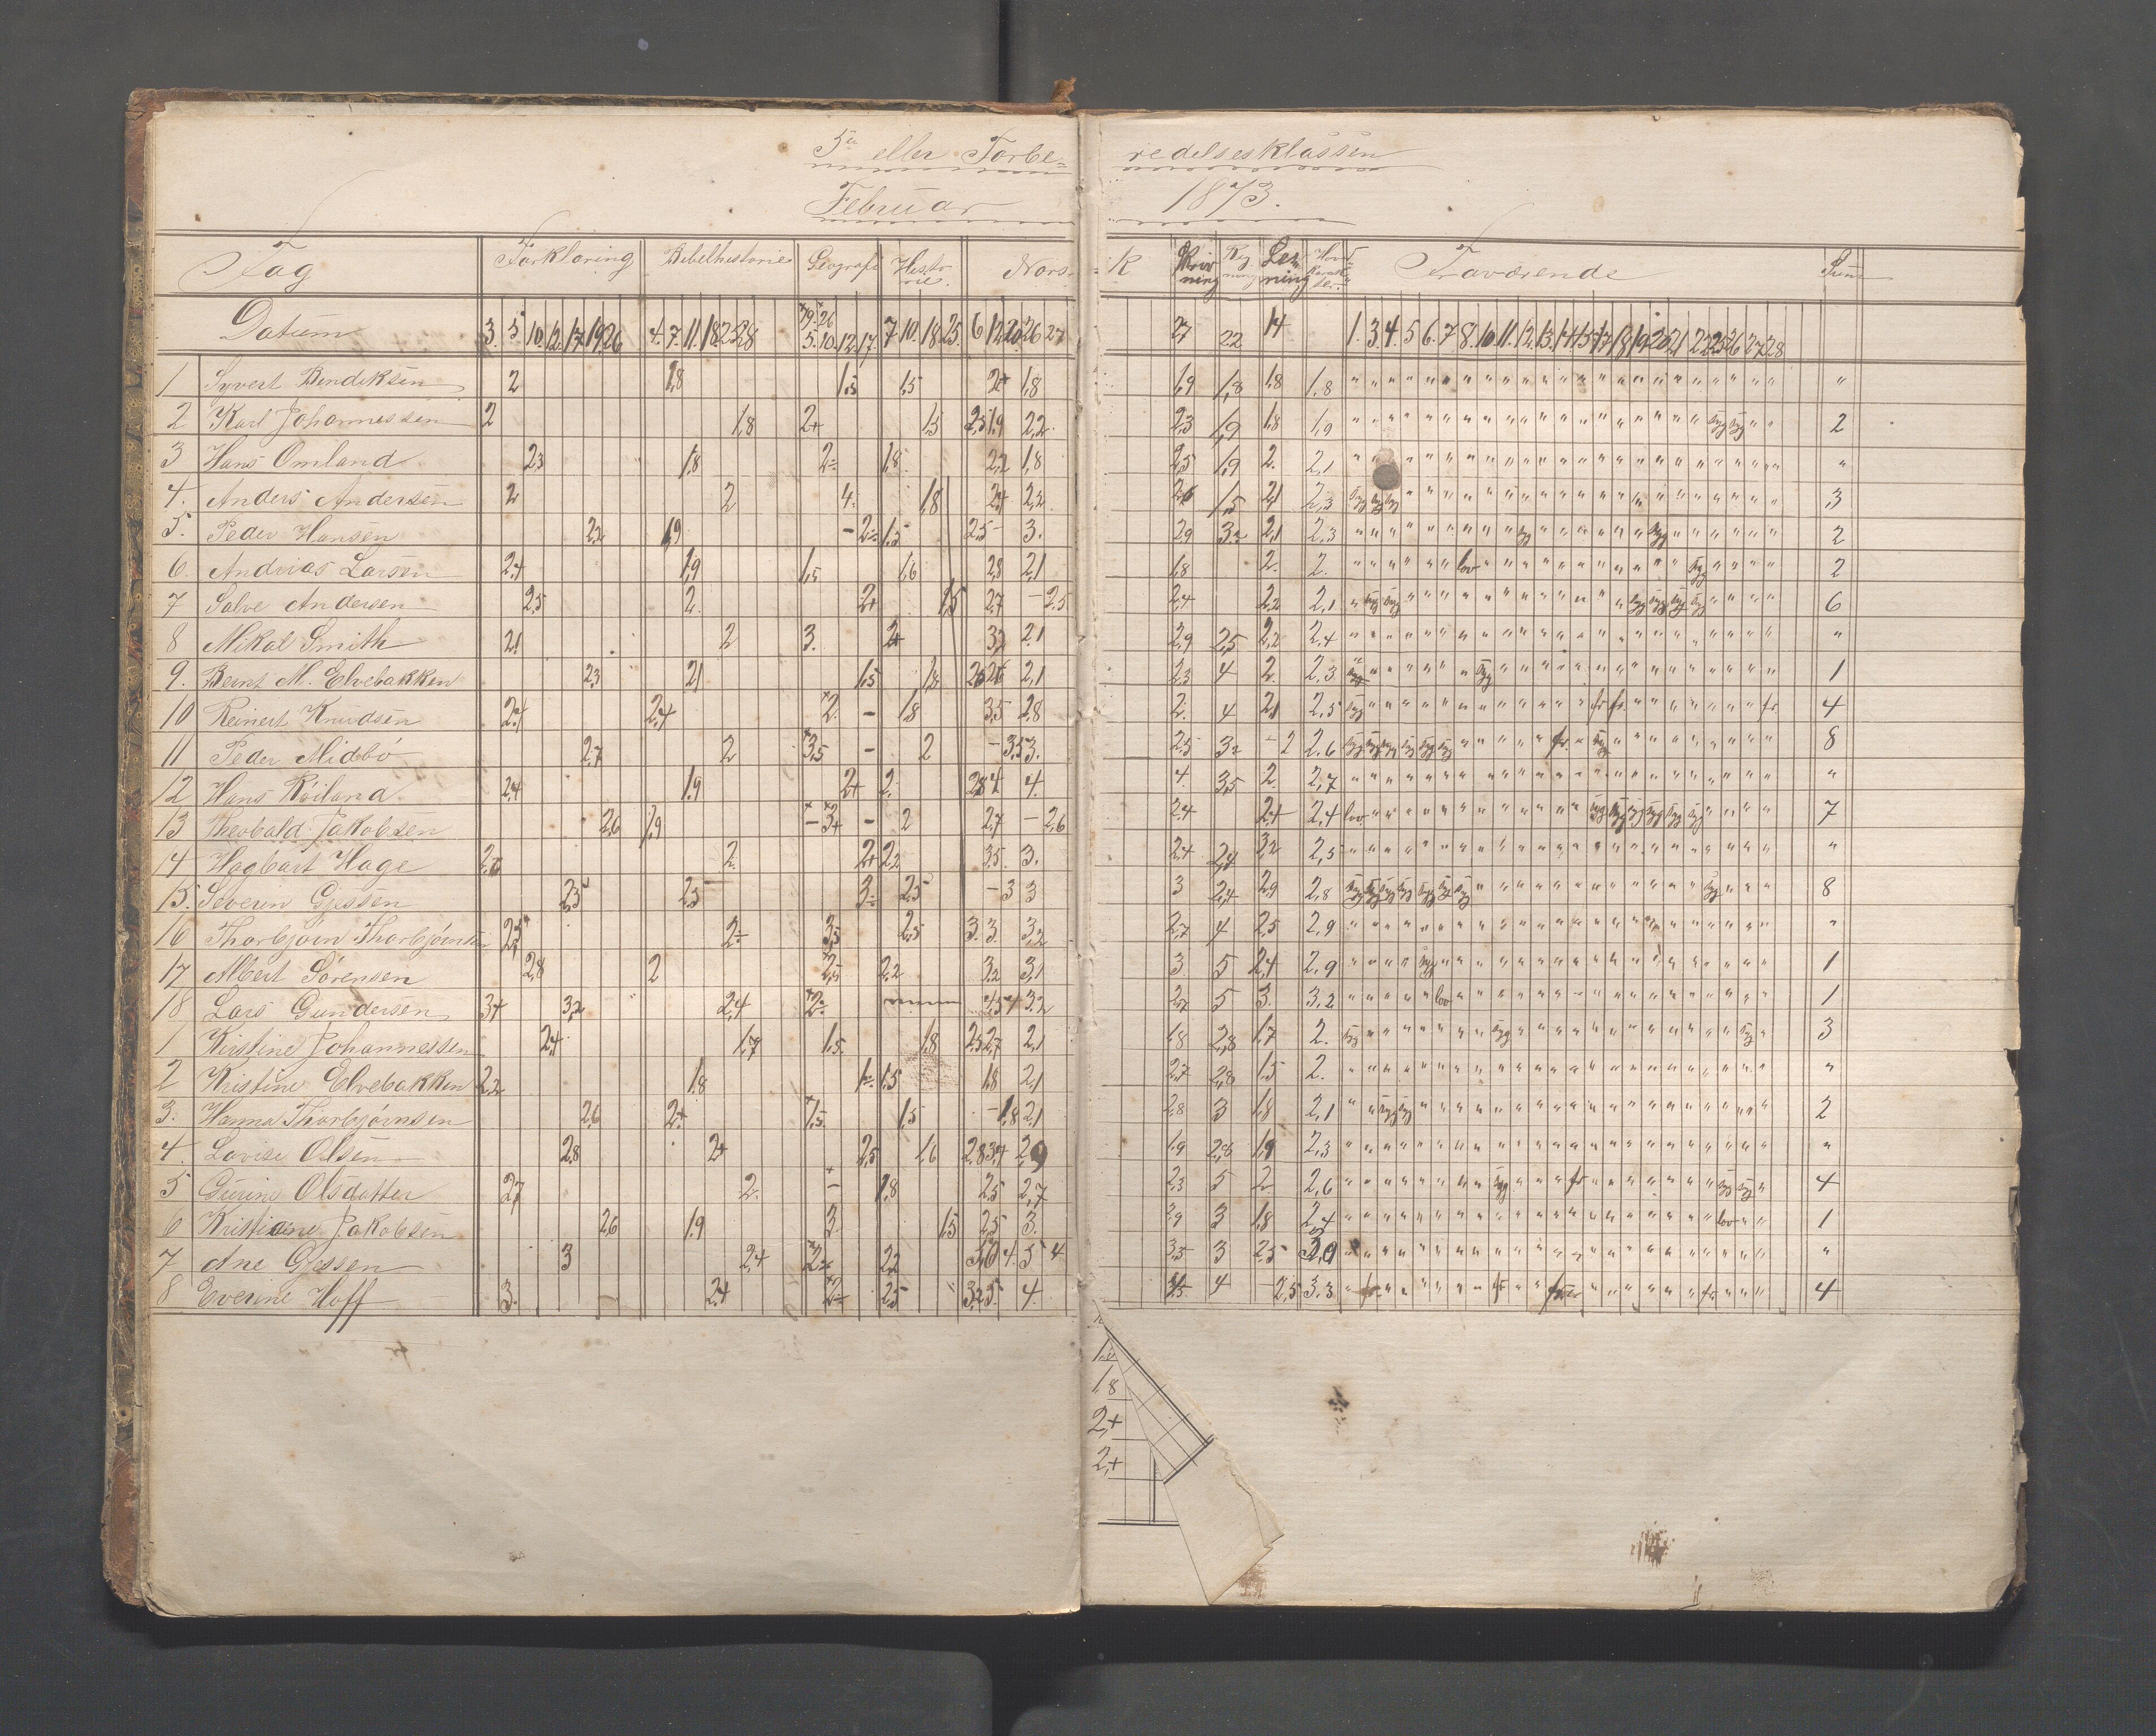 5te eller Forbe=
redelsesklassen
Februar
1873.
Fag Forklaring Bibelhistorie Geografi Histo-rie. Nors= =k Skriv-ning Reg-ning Læs-ning Hoved-karak-ter. Fraværende Sum
Datum 3. 5. 10. 12. 17. 19. 26 4. 7. 11. 18. 25. 28 19. 26 5. 10. 12. 17. 7. 10. 18. 25. 6. 12. 20. 26 27 27 22 14 1. 3. 4. 5. 6. 7. 8. 10. 11. 12. 13. 14. 15. 17. 18. 19. 20. 21. 22. 25. 26 27. 28
1 Syvert Bendiksen 2 1,8 1,5 1,5 2+ 1,8 1,9 1,8 1,8 1.8 "
2 Karl Johannessen 2 1,8 2+ 1,5 2,5 1,9 2,2 2,3 1,9 1,8 1,9 syg syg 2
3 Hans Omland 2,3 1,8 2- 1,8 2,2 1,8 2,5 1,9 2. 2,1 "
4. Anders Andersen 2 2 4. 1,8 2,4 2,2 2,6 1,5 2,1 2,3 syg syg syg 3
5. Peder Hansen 2,2 1,9 - 2- 1,5 2,5 - 3. 2,9 3,2 2,1 2.3 syg syg 2
6. Andreas Larsen 2,4 1,9 1,5 1,6 2,8 2,1 1,8 2. 2. lov syg 2
7 Salve Andersen 2,5 2. 2+ 1,5 2,7 - 2,5 2,4 2,2 2,1 syg syg syg syg syg syg 6
8 Mikal Smith 2,1 2 3. 2+ 3,2 2.1 2,9 2,5 2,2 2.4 "
9. Bernt M. Elvebakken 2,3 2,1 1,5 1,8 2,5 2,6 2,1 2,3 4 2. 2,3 syg 1
10 Reinert Knudsen 2,4 2,4 2. - 1,8 3,5 2,8 2. 4 2,1 2,5 syg fr fr. fr. 4
11 Peder Midbø 2,7 2 3,5 - 2 - 3,5 3. 2,5 3,2 - 2 2.6 syg syg syg syg syg syg fr. syg 8
12 Hans Røiland 2,4 1,9 2+ 2. 2,8 4 4. 4. 3,5 2. 2,7 "
13 Theobald Jakobsen 2,6 1,9 - 3+ - 2 2,7 - 2,6 2,4 2,4 2,4 lov. syg syg syg syg syg syg 7
14 Hagbart Hage 2,6 2. 2+ 2,2 3,5. 3. 2,4 2,4 3,2 2,5 "
15. Severin Gjessen 2,5 2,5 3- 2,5 - 3 3 3 2,4 2,9 2,8 syg syg syg syg syg syg syg syg 8
16 Thorbjørn Thorbjørnsen 2,5 2- 3,5 2,5 3. 3. 3,2 2,7 4 2,5 2,9 "
17 Albert Sørensen 2,8 2 2,5 2,2 3,2 3,1 3 5 2,4 2,9 syg 1
18 Lars Gundersen 3+ 3,2 2,4 2- 4,5 4 3,2 2,7 5 3. 3,2 lov 1
1 Kirstine Johannessen 2,4 1,7 1,5. 1,8 2,5 2,7 2,1 1,8 2,8 1,7 2. syg syg syg 3
2 Kristine Elvebakken 2,2 1,8 1- 1,5 1,8 2,1 2,7 2,8 1,5 2. "
3. Hanna Thorbjørnsen 2,6 2+ 1,5. 1,5 - 1,8 2,1 2,8 3 1,8 2,1 syg syg 2
4. Lovise Olsen 2,8 2+ 2,5 1,6 2,8 3,4 2,9 1,9 2,8 1,9 2,3 "
5 Gurine Olsdatter 2,7 2. - 1,8 2,5 2,7 2,3 5 2. 2,6 syg fr syg syg 4
6 Kristiane Jakobsen 2,6 1,9 3. 1,5 2,5 3. 2,9 3 1,8 2,4 lov 1
7 Ane Gjessen 3 2,4 2- 2,2 3,6 4. 5 4 3,5 3 2,5 3,0 "
8 Everine Hoff 3. 2,4 2- 2,5 3,2 3. 4. 4,5 4 - 2,5 3.3 fr. fr fr fr 4
1,8
2,+
2,+